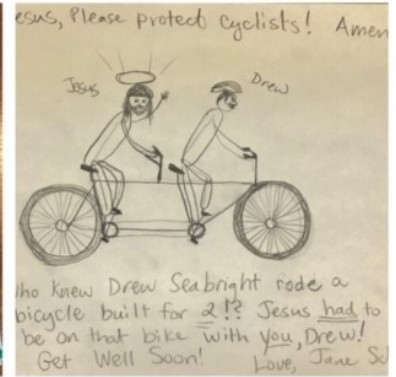 esus, Please protect cyclists! Amen
Jesus
Drew
ho knew Drew Seabright rode a
bicycle built for 2!? Jesus had to
be on that bike with you, Drew!
Get Well Soon!
Love, Jane Sc